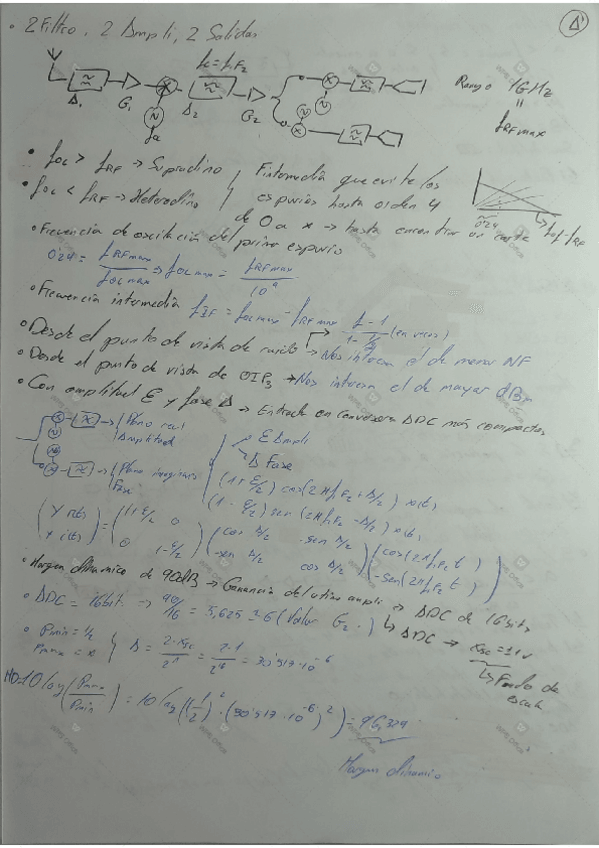 • 2 Filtro, 2 Ampli, 2 Salidas
Δ
fc = fF2
Δ1 G1 Δ2 G2
Rango 1GHz
=
fRFmax
• fOL > fRF → Supradino
• fOL < fRF → Heterodino
F intermedia que evite los
espurios hasta orden 4
de 0 a x → hasta encontrar un corte
0'24
• Frecuencia de oscilación del primer espurio
024 = fRFmax / fOLmax → fOLmax = fRFmax /
• Frecuencia intermedia fIF = fOLmax - fRFmax
(en veces)
• Desde el punto de vista de ruido → Nos interesa el de menor NF
• Desde el punto de vista de OIP3 → Nos interesa el de mayor
• Con amplitud E y fase Δ → Entrada en conversor ADC más compactos
Plano real
Amplitud
Plano imaginario
Fase
E Ampli
Δ Fase
(1+E/2) cos(2πfIF2 + Δ/2) x(t)
(1-E/2) sen(2πfIF2 - Δ/2) x(t)
(1+E/2 0
0 1-E/2)
(cos Δ/2 -sen Δ/2
-sen Δ/2 cos Δ/2)
(cos(2πfIF2 t)
-sen(2πfIF2 t))
• Margen dinamico de 90dB → Ganancia del ultimo ampli → ADC de 16bits
• ADC = 16bit → 90/16 = 5,625 ≈ 6 (Valor G2) ↳ ADC → xsc = ±1v
↳ Fondo de
escala
• Pmin = Δ/2
Pmax = x
Δ = 2·xsc / = 2·1 / = 30'517·10^-6
MD = 10log(Pmax/Pmin) = 10log((1/2)^2·(30'517·10^-6)^2) =
Margen dinamico